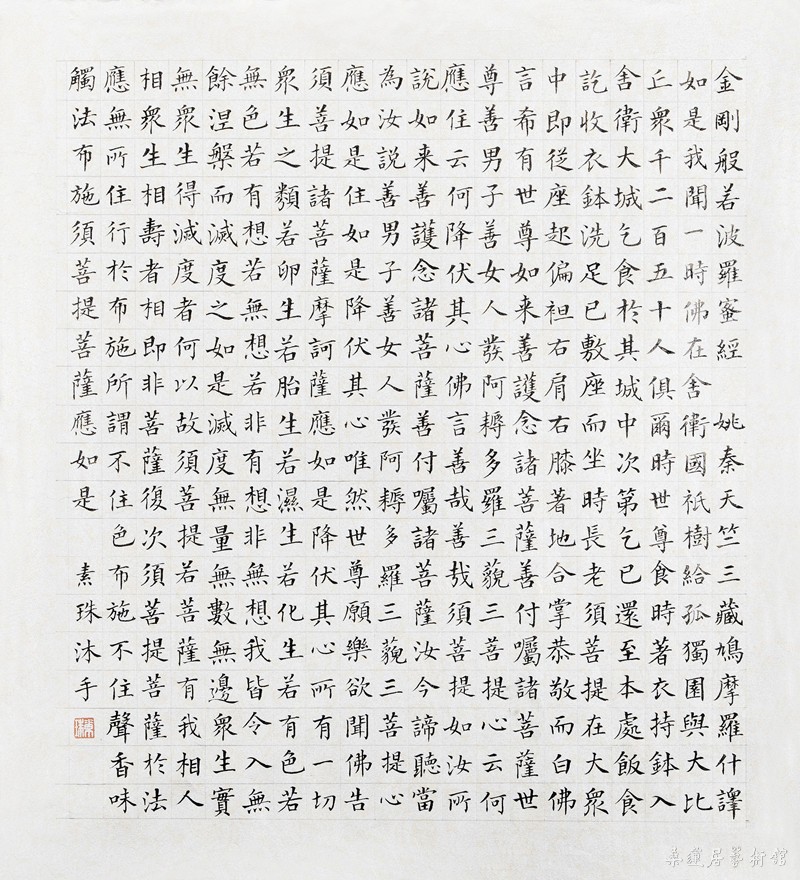 金剛般若波羅蜜經 姚秦天竺三藏鳩摩羅什譯
如是我聞一時佛在舍衛國祇樹給孤獨園與大比
丘衆千二百五十人俱爾時世尊食時著衣持鉢入
舍衛大城乞食於其城中次第乞已還至本處飯食
訖收衣鉢洗足已敷座而坐時長老須菩提在大衆
中即從座起偏袒右肩右膝著地合掌恭敬而白佛
言希有世尊如来善護念諸菩薩善付囑諸菩薩世
尊善男子善女人發阿耨多羅三藐三菩提心云何
應住云何降伏其心佛言善哉善哉須菩提如汝所
說如来善護念諸菩薩善付囑諸菩薩汝今諦聽當
為汝説善男子善女人發阿耨多羅三藐三菩提心
應如是住如是降伏其心唯然世尊願樂欲聞佛告
須菩提諸菩薩摩訶薩應如是降伏其心所有一切
衆生之類若卵生若胎生若濕生若化生若有色若
無色若有想若無想若非有想非無想我皆令入無
餘涅槃而滅度之如是滅度無量無數無邊衆生實
無衆生得滅度者何以故須菩提若菩薩有我相人
相衆生相壽者相即非菩薩復次須菩提菩薩於法
應無所住行於布施所謂不住色布施不住聲香味
觸法布施須菩提菩薩應如是 素珠沐手
桑蓮居藝術館